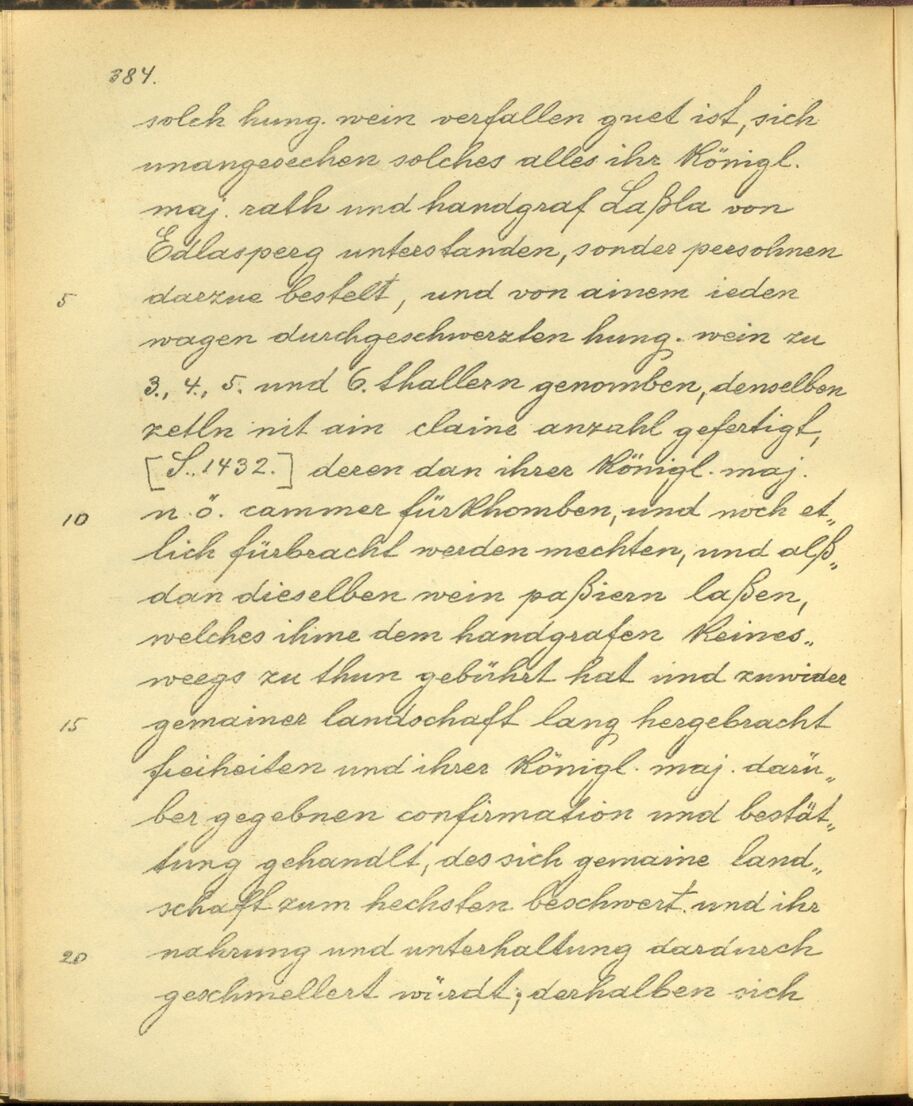 384.
solch hung. wein verfallen guet ist, sich
unangesechen solches alles ihr Königl.
maj. rath und handgraf Laßla von
Edlasperg unterstanden, sonder persohnen
5 darzue bestelt, und von ainem ieden
wagen durchgeschwerzten hung. wein zu
3., 4., 5. und 6. thallern genomben, denselben
zetln nit ain claine anzahl gefertigt,
[S. 1432.] deren dan ihrer Königl. maj.
10 n. ö. cammer fürkhomben, und noch et„
lich fürbracht werden mechten, und alß„
dan dieselben wein paßiern laßen,
welches ihme dem handgrafen keines„
weegs zu thun gebührt hat und zuwider
15 gemainer landschaft lang hergebracht
freiheiten und ihrer Königl. maj. darü„
ber gegebnen confirmation und bestät„
tung gehandlt, des sich gemaine land„
schaft zum hechsten beschwert und ihr
20 nahrung und unterhaltung dardurch
geschmellert würdt; derhalben sich